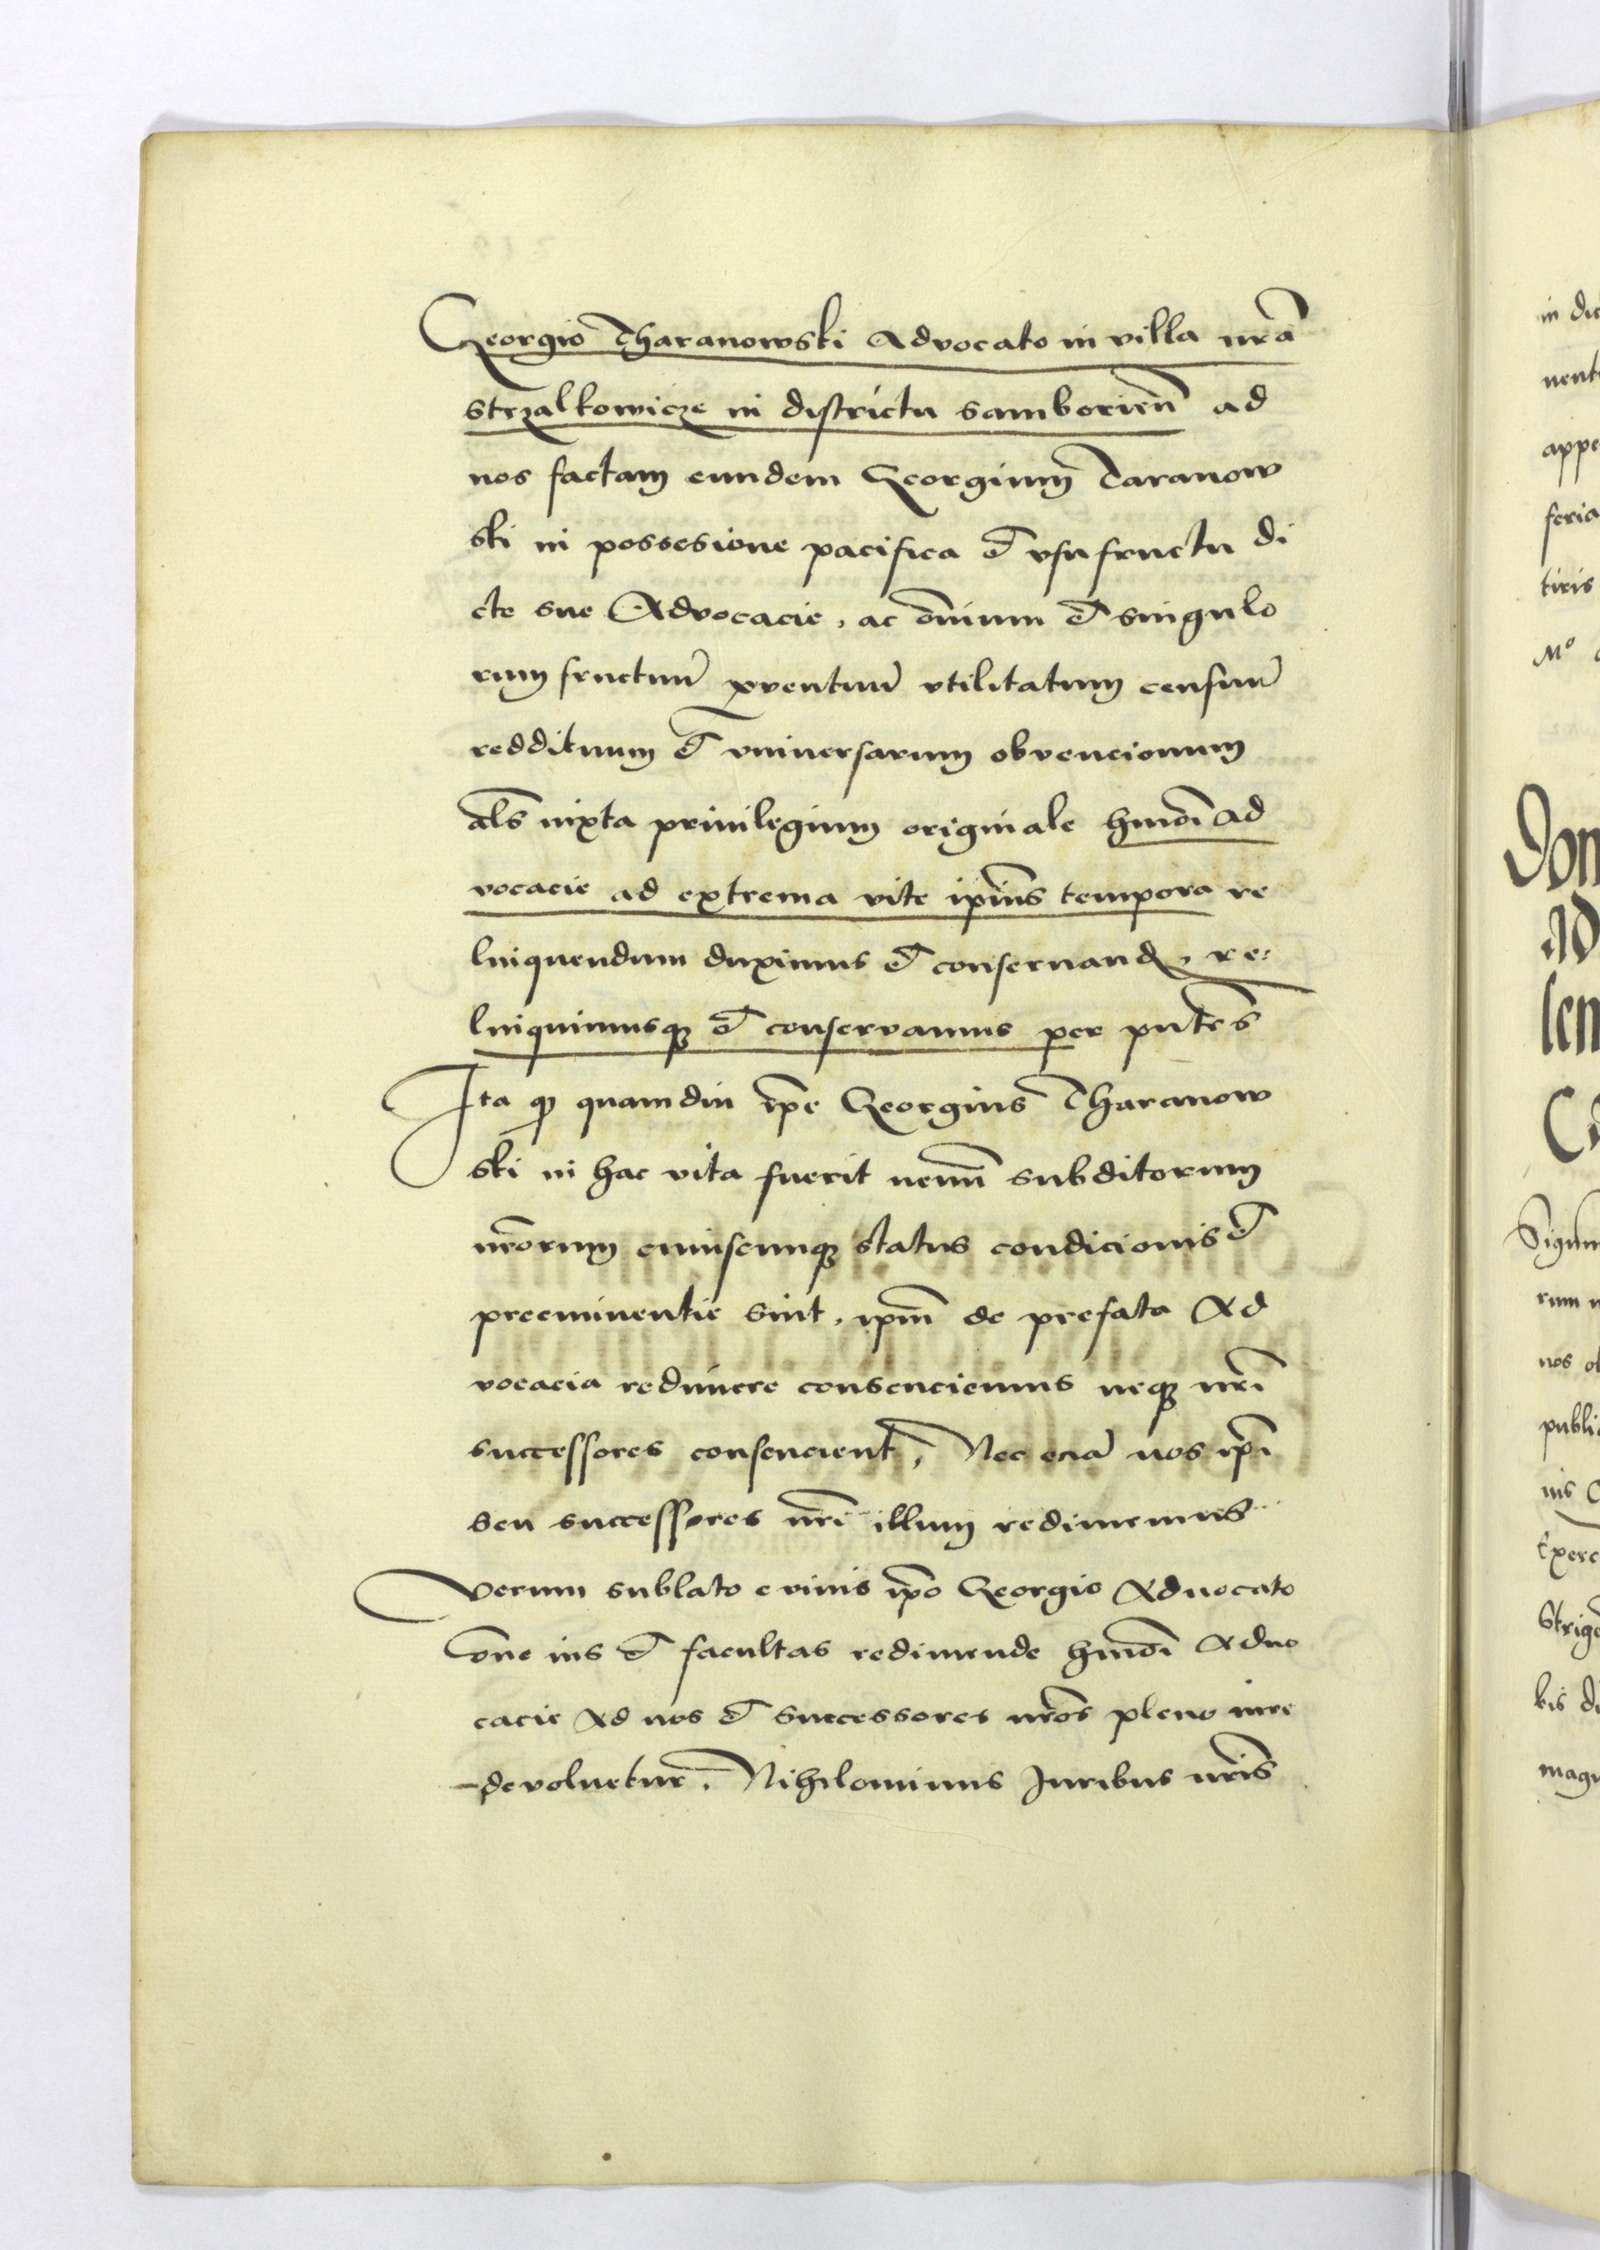 Georgio Tharanowski Advocato in villa nrā
strzalkowicze in districtu samborien̄ ad
nos factam eundem Georgium Taranow
ski in possesione pacifica et vsufructu di
cte sue Advocacie, ac om̄ium et singulo
rum fructuū ꝓventuū vtilitatum censuū
reddituum et vniversarum obvencionum
al̄s iuxta privilegium originale hmōi ad
vocacie ad extrema vite ipiūs tempora re
linquendum duximus et conservand, re:
linquimusqꝫ et conservamus per pn̄tes
Ita qp quamdiu ip̄e Georgius Tharanow
ski in hac vita fuerit nemī subditorum
nr̄orum cuiuscunqꝫ status condicionis et
preeminentie sint, ipm̄ de prefata Ad
vocacia redimere consenciemus neqꝫ nr̄i
successores consencient, Nec eciā nos ip̄i
seu successores nr̄i illum redimemus
Verum sublato e vivis ip̄o Georgio Advocato
om̄e ius et facultas redimende hmōi Advo
cacie Ad nos et successores nr̄os pleno iure
devoluetur, Nihilominus Juribus nr̄is
in
nos
M°
Don
ad